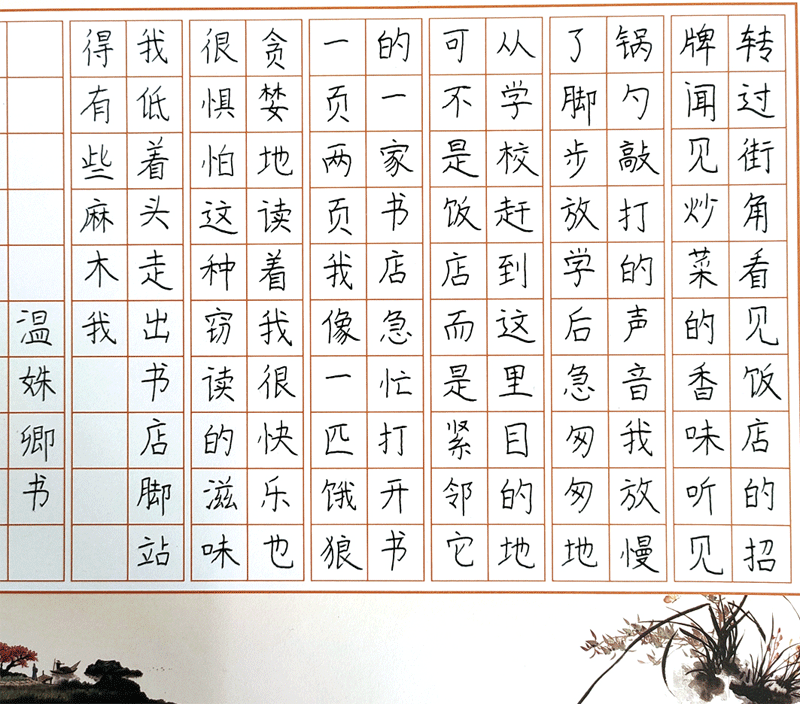 转过街角看见饭店的招
牌闻见炒菜的香味听见
锅勺敲打的声音我放慢
了脚步放学后急匆匆地
从学校赶到这里目的地
可不是饭店而是紧邻它
的一家书店急忙打开书
一页两页我像一匹饿狼
贪婪地读着我很快乐也
很惧怕这种窃读的滋味
我低着头走出书店脚站
得有些麻木我
温姝卿书